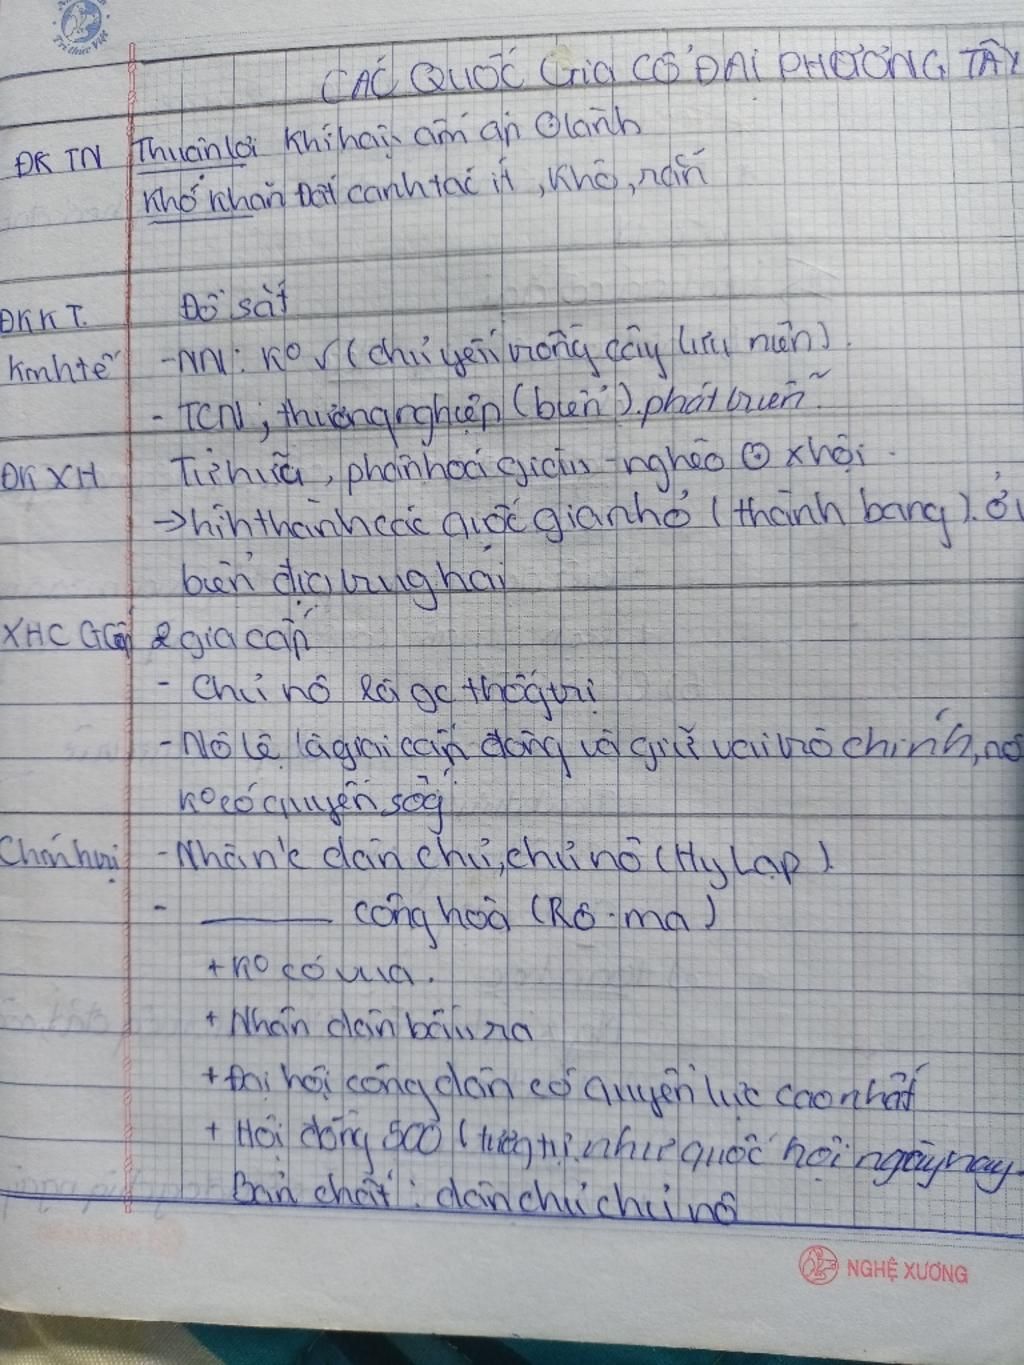 Trí thức Việt
CÁC QUỐC Gia CỔ ĐẠI PHƯƠNG TÂY
ĐK TN Thuận lợi Khí hậu ấm áp lành
Khó khăn Đất canh tác ít, khô, rắn
ĐK KT. Đồ sắt
Kinh tế - NN: Ko √ (chủ yếu trồng cây lưu niên).
- TCN, thương nghiệp (biển). phát triển
ĐK XH Tư hữu, phân hoá giàu - nghèo xhội.
→ hình thành các quốc gia nhỏ (thành bang). Ở
biển địa trung hải
XHC GCấp 2 giai cấp
- Chủ nô là gc thống trị
- Nô lệ là giai cấp đông và giữ vai trò chính, nô
ko có quyền sống
Chính trị - Nhà nc dân chủ, chủ nô (Hy Lạp).
- ____ cộng hoà (Rô-ma)
+ Ko có vua.
+ Nhân dân bầu ra
+ Đại hội công dân có quyền lực cao nhất
+ Hội đồng 500 (tương tự như quốc hội ngày nay
Bản chất: dân chủ chủ nô
NGHỆ XƯƠNG